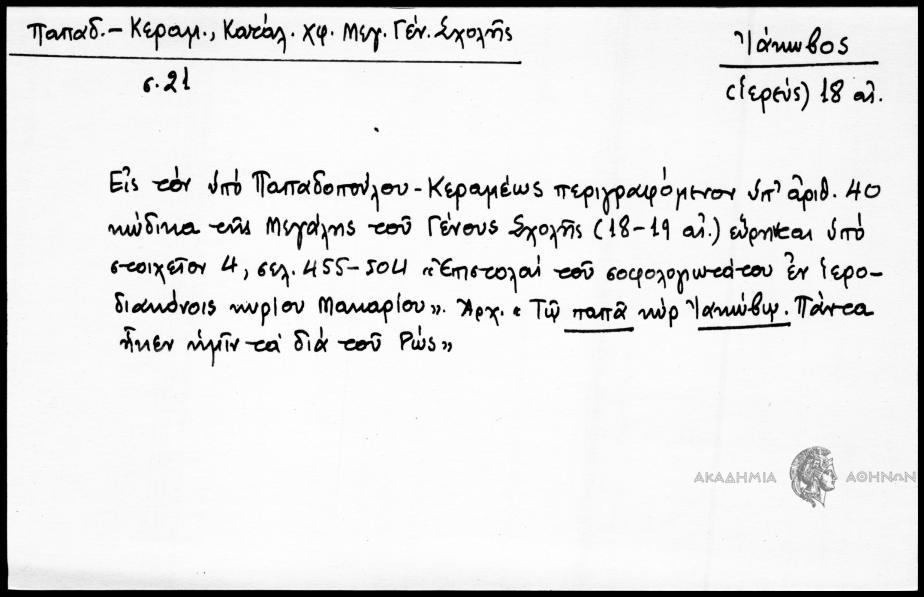 Παπαδ.-Κεραμ., Κατάλ. χφ. Μεγ. Γέν. Σχολῆς
Ἰάκωβος
σ. 21
(ἱερεύς) 18 αἰ.
Εἰς τὸν ὑπὸ Παπαδοπούλου-Κεραμέως περιγραφόμενον ὑπ' ἀριθ. 40
κώδικα τῆς Μεγάλης τοῦ Γένους Σχολῆς (18-19 αἰ.) εὕρηται ὑπὸ
στοιχεῖον 4, σελ. 455-504 «Ἐπιστολαὶ τοῦ σοφολογιωτάτου ἐν ἱερο-
διακόνοις κυρίου Μακαρίου». Ἀρχ. «Τῷ παπᾶ κὺρ Ἰακώβῳ. Πάντα
ἧκεν ἡμῖν τὰ διὰ τοῦ Ῥώς»
ΑΚΑΔΗΜΙΑ ΑΘΗΝΩΝ